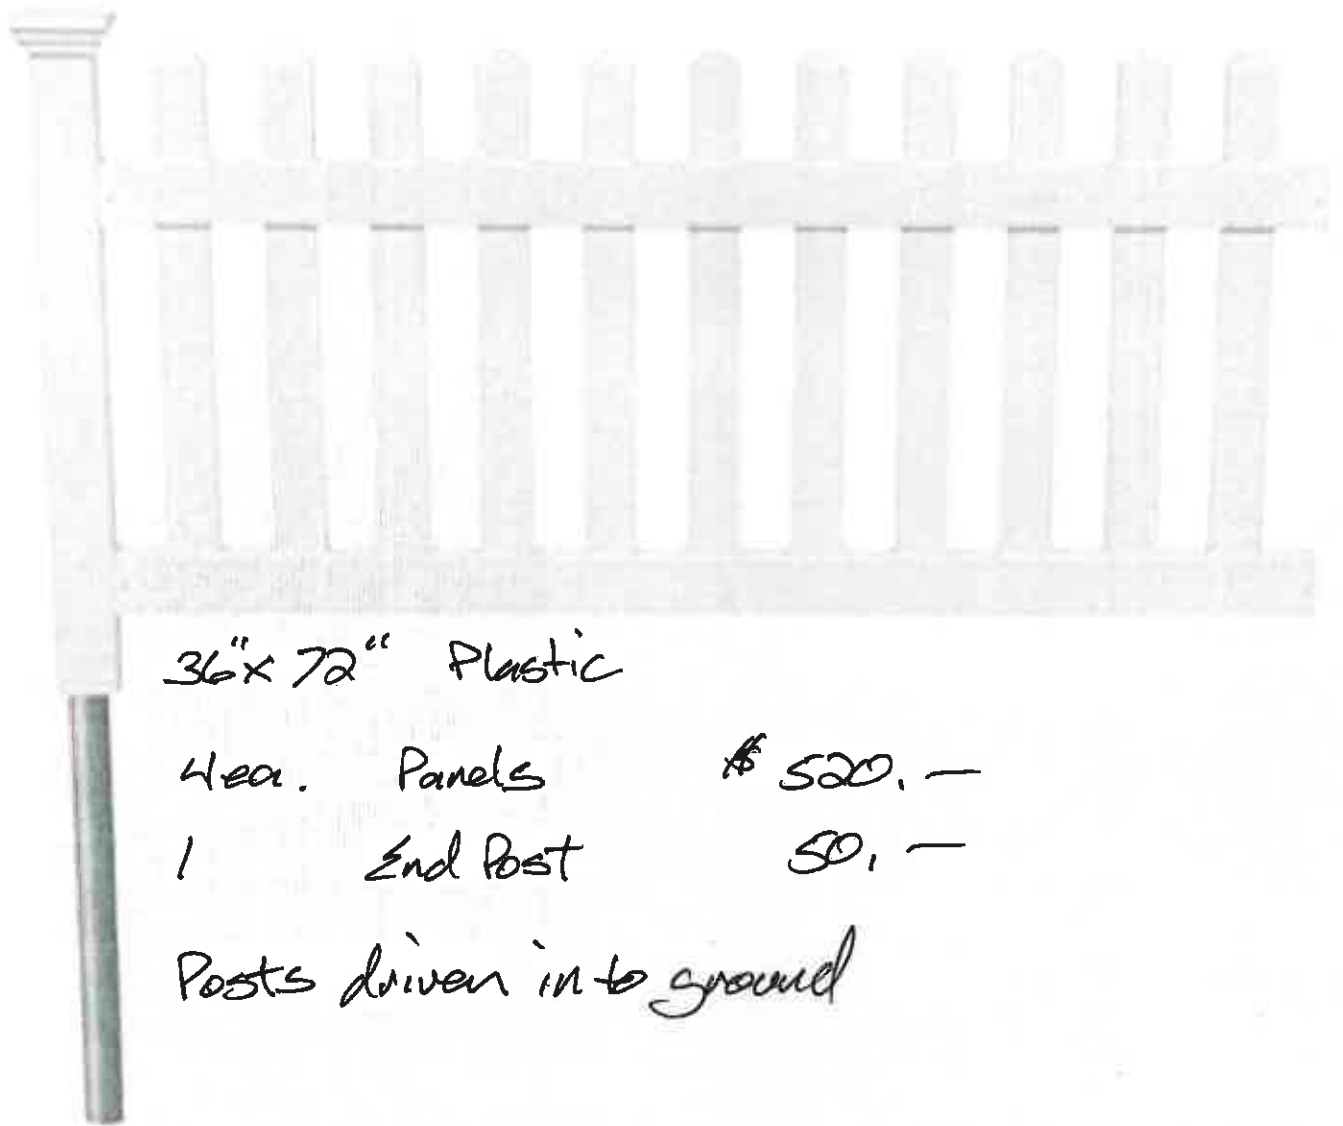 36"x 72" Plastic
4ea. Panels $ 520.—
1 End Post 50.—
Posts driven into ground